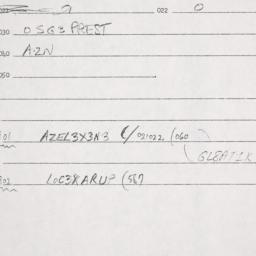 022 0
030 OSG3 PREST
AZN
050
AZEL3X3N3 4/021022 (060
GLEATIK
LOC3XARUP (567